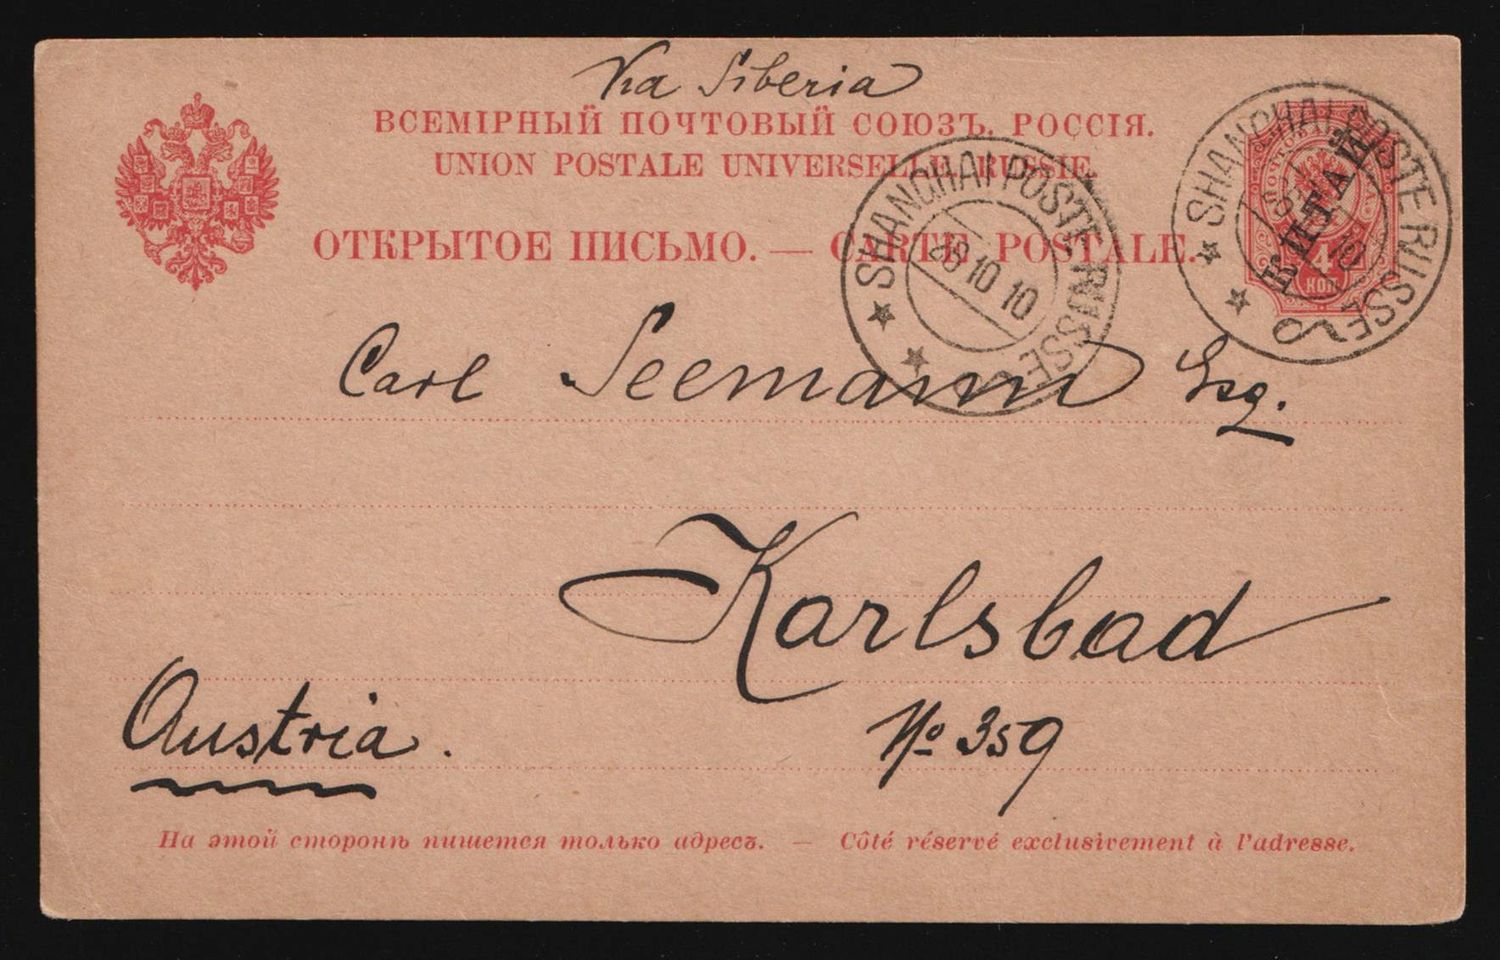 Via Siberia
ВСЕМІРНЫЙ ПОЧТОВЫЙ СОЮЗЪ. РОССІЯ.
UNION POSTALE UNIVERSELLE. RUSSIE.
ОТКРЫТОЕ ПИСЬМО. — CARTE POSTALE.
SHANGHAI POSTE RUSSE
28 10 10
SHANGHAI POSTE RUSSE
10
КИТАЙ
4
КОП
Carl Seemann Esq.
Karlsbad
No 359
Austria.
На этой сторонѣ пишется только адресъ. — Côté réservé exclusivement à l'adresse.